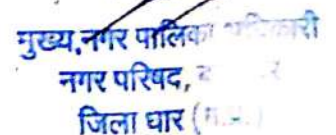 मुख्य,नगर पालिका
नगर परिषद,
जिला धार (म.प्र.)